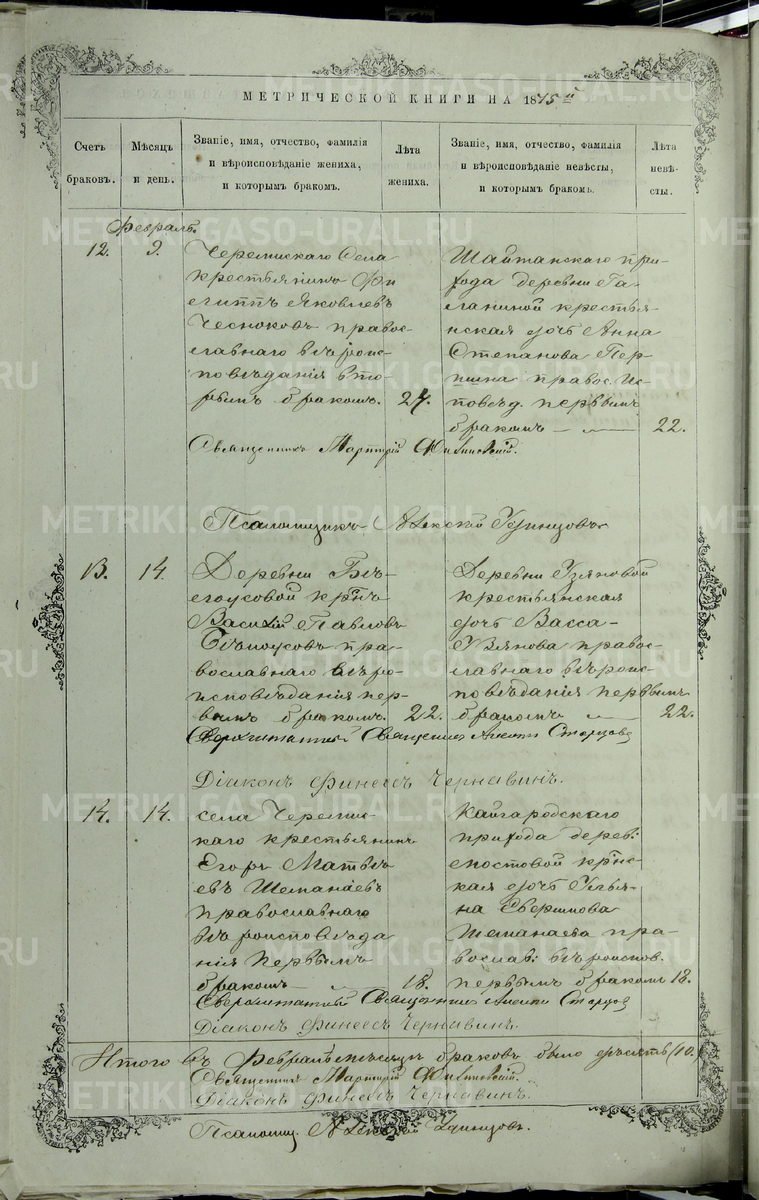 МЕТРИЧЕСКОЙ КНИГИ НА 1875 й
Счетъ браковъ.
Мѣсяцъ и день.
Званіе, имя, отчество, фамилія
и вѣроисповѣданіе жениха,
и которымъ бракомъ.
Лѣта жениха.
Званіе, имя, отчество, фамилія
и вѣроисповѣданіе невѣсты,
и которымъ бракомъ.
Лѣта невѣ-
сты.
Февраль.
12.
9.
Черемискаго Села
крестьянинъ Фи
липпъ Яковлевъ
Чесноковъ правос
лавнаго вѣроис
повѣданія вто
рымъ бракомъ.
27.
Шайтанскаго при
хода деревни Га
ланиной крестья
нская дочь Анна
Степанова Пер
шина правос. Ис
повѣд. первымъ
бракомъ
22.
Священникъ Мартирій
Псаломщикъ Алексій Удинцовъ
13.
14.
Деревни Бѣ-
лоусовой кр͠нъ
Василій Павловъ
Бѣлоусовъ пра-
вославнаго вѣро-
исповѣданія пер-
вымъ бракомъ.
22.
Деревни Узяновой
крестьянская
дочь Васса
Узянова правос-
лавнаго вѣроис-
повѣданія первымъ
бракомъ
22.
Сверхштатный Священникъ Старцовъ
Діаконъ Финеесъ Чернавинъ.
14.
14.
села Череми
каго крестьянинъ
Егоръ Матвѣ
евъ Шеманаевъ
православнаго
вѣроисповѣда
нія первымъ
бракомъ
18.
Кайгародскаго
прихода дерев:
кр͠нс-
кая дочь Улья
на
Шеманаева пра-
вослав: вѣроиспов.
первымъ бракомъ
18.
Сверхштатный Священникъ Старцовъ
Діаконъ Финеесъ Чернавинъ.
Итого въ Февралѣ мѣсяцѣ браковъ было десять (10.
Священникъ Мартирій
Діаконъ Финеесъ Чернавинъ.
Псаломщ. Алексій Удинцовъ.
METRIKI.GASO-URAL.RU